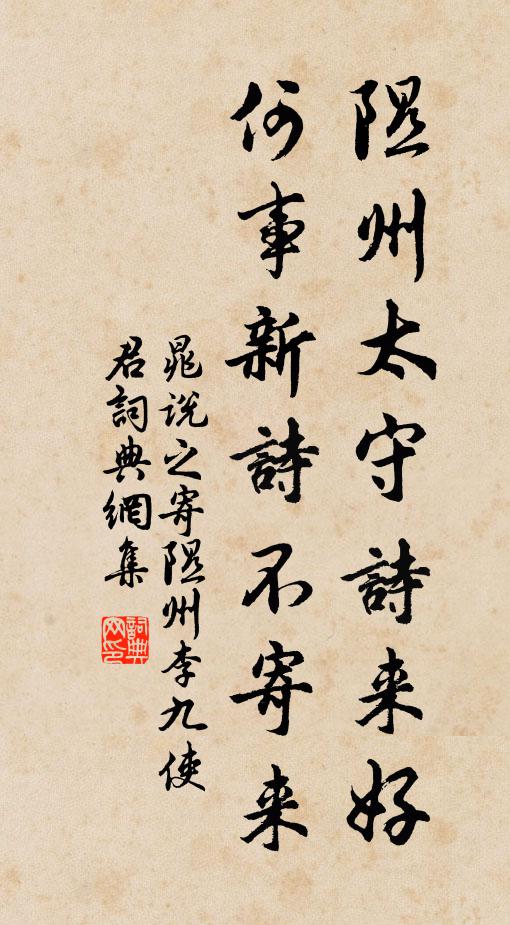 隰州太守詩来好
何事新詩不寄来
晁説之寄隰州李九使
君詞典網集
詞典網印